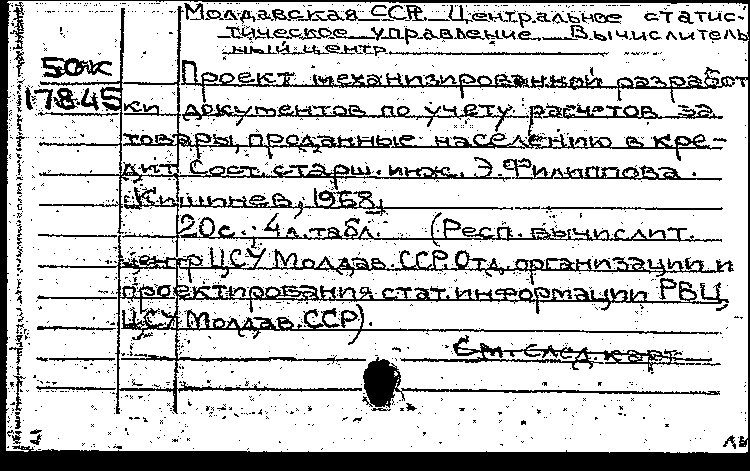 Молдавская ССР. Центральное статис-
тическое управление. Вычислитель
ный центр.
50як
17845
Проект механизированной разработ
ки документов по учету расчетов за
товары, проданные населению в кре-
дит Сост. старш. инж. Э. Филиппова.
Кишинев, 1968,
20с.; 4 л. табл. (Респ. вычислит.
центр ЦСУ Молдав. ССР. Отд. организации и
проектирования стат. информации РВЦ,
ЦСУ Молдав. ССР).
См. след. карт.